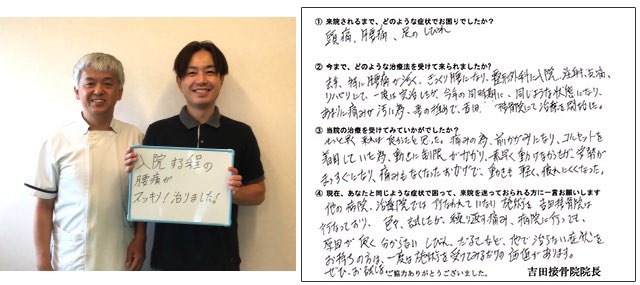 入院する程の
腰痛が
スッキリ！治りました！
① 来院されるまで、どのような症状でお困りでしたか？
頭痛、腰痛、足のしびれ
② 今まで、どのような治療法を受けて来られましたか？
去年、特に腰痛が酷く、ぎっくり腰になり、整形外科に入院、注射、点滴、
リハビリして、一度は完治したが、今年の同時期に、同じような状態になり、
あまりに痛みが酷い為、妻の推めで、吉田接骨院にて治療を開始。
③ 当院の治療を受けてみていかがでしたか？
もっと早く来れば良かったと思った。痛みの為、前かがみになり、コルセットを
着用していた為、動きに制限がかかり、素早く動けなかったが、背筋が
まっすぐになり、痛みもなくなったおかげで、動きも軽く、疲れにくくなった。
④ 現在、あなたと同じような症状で困って、来院を迷っておられる方に一言お願いします
他の病院、治療院では行なわれていない施術を吉田接骨院は
行なっており、色々、試したが、繰り返す痛み、病院に行っても、
原因が良く分からないしびれ、だるさなど、他で治らない症状を
お持ちの方は、一度は施術を受けてみるだけの価値があります。
ぜひ、お試しを
ご協力ありがとうございました。
吉田接骨院院長